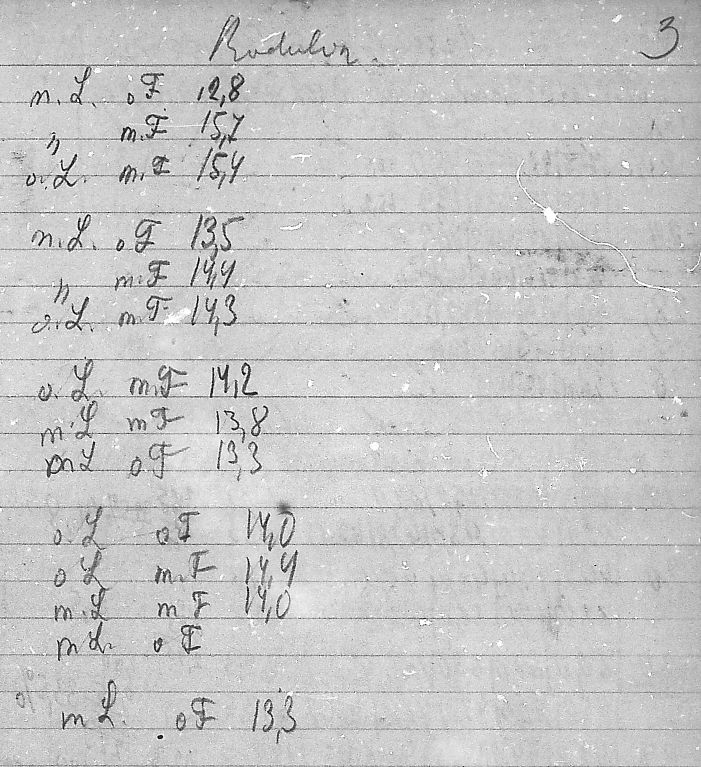 3
m.L. oF 12,8
" m.F 15,7
o.L. m.F 15,4
m.L. oF 13,5
" m.F 14,4
o.L. m.F 14,3
o.L. m.F 14,2
m.L mF 13,8
mL oF 13,3
o.L oF 14,0
oL m.F 14,4
m.L mF 14,0
mL. oF
mL. oF 13,3